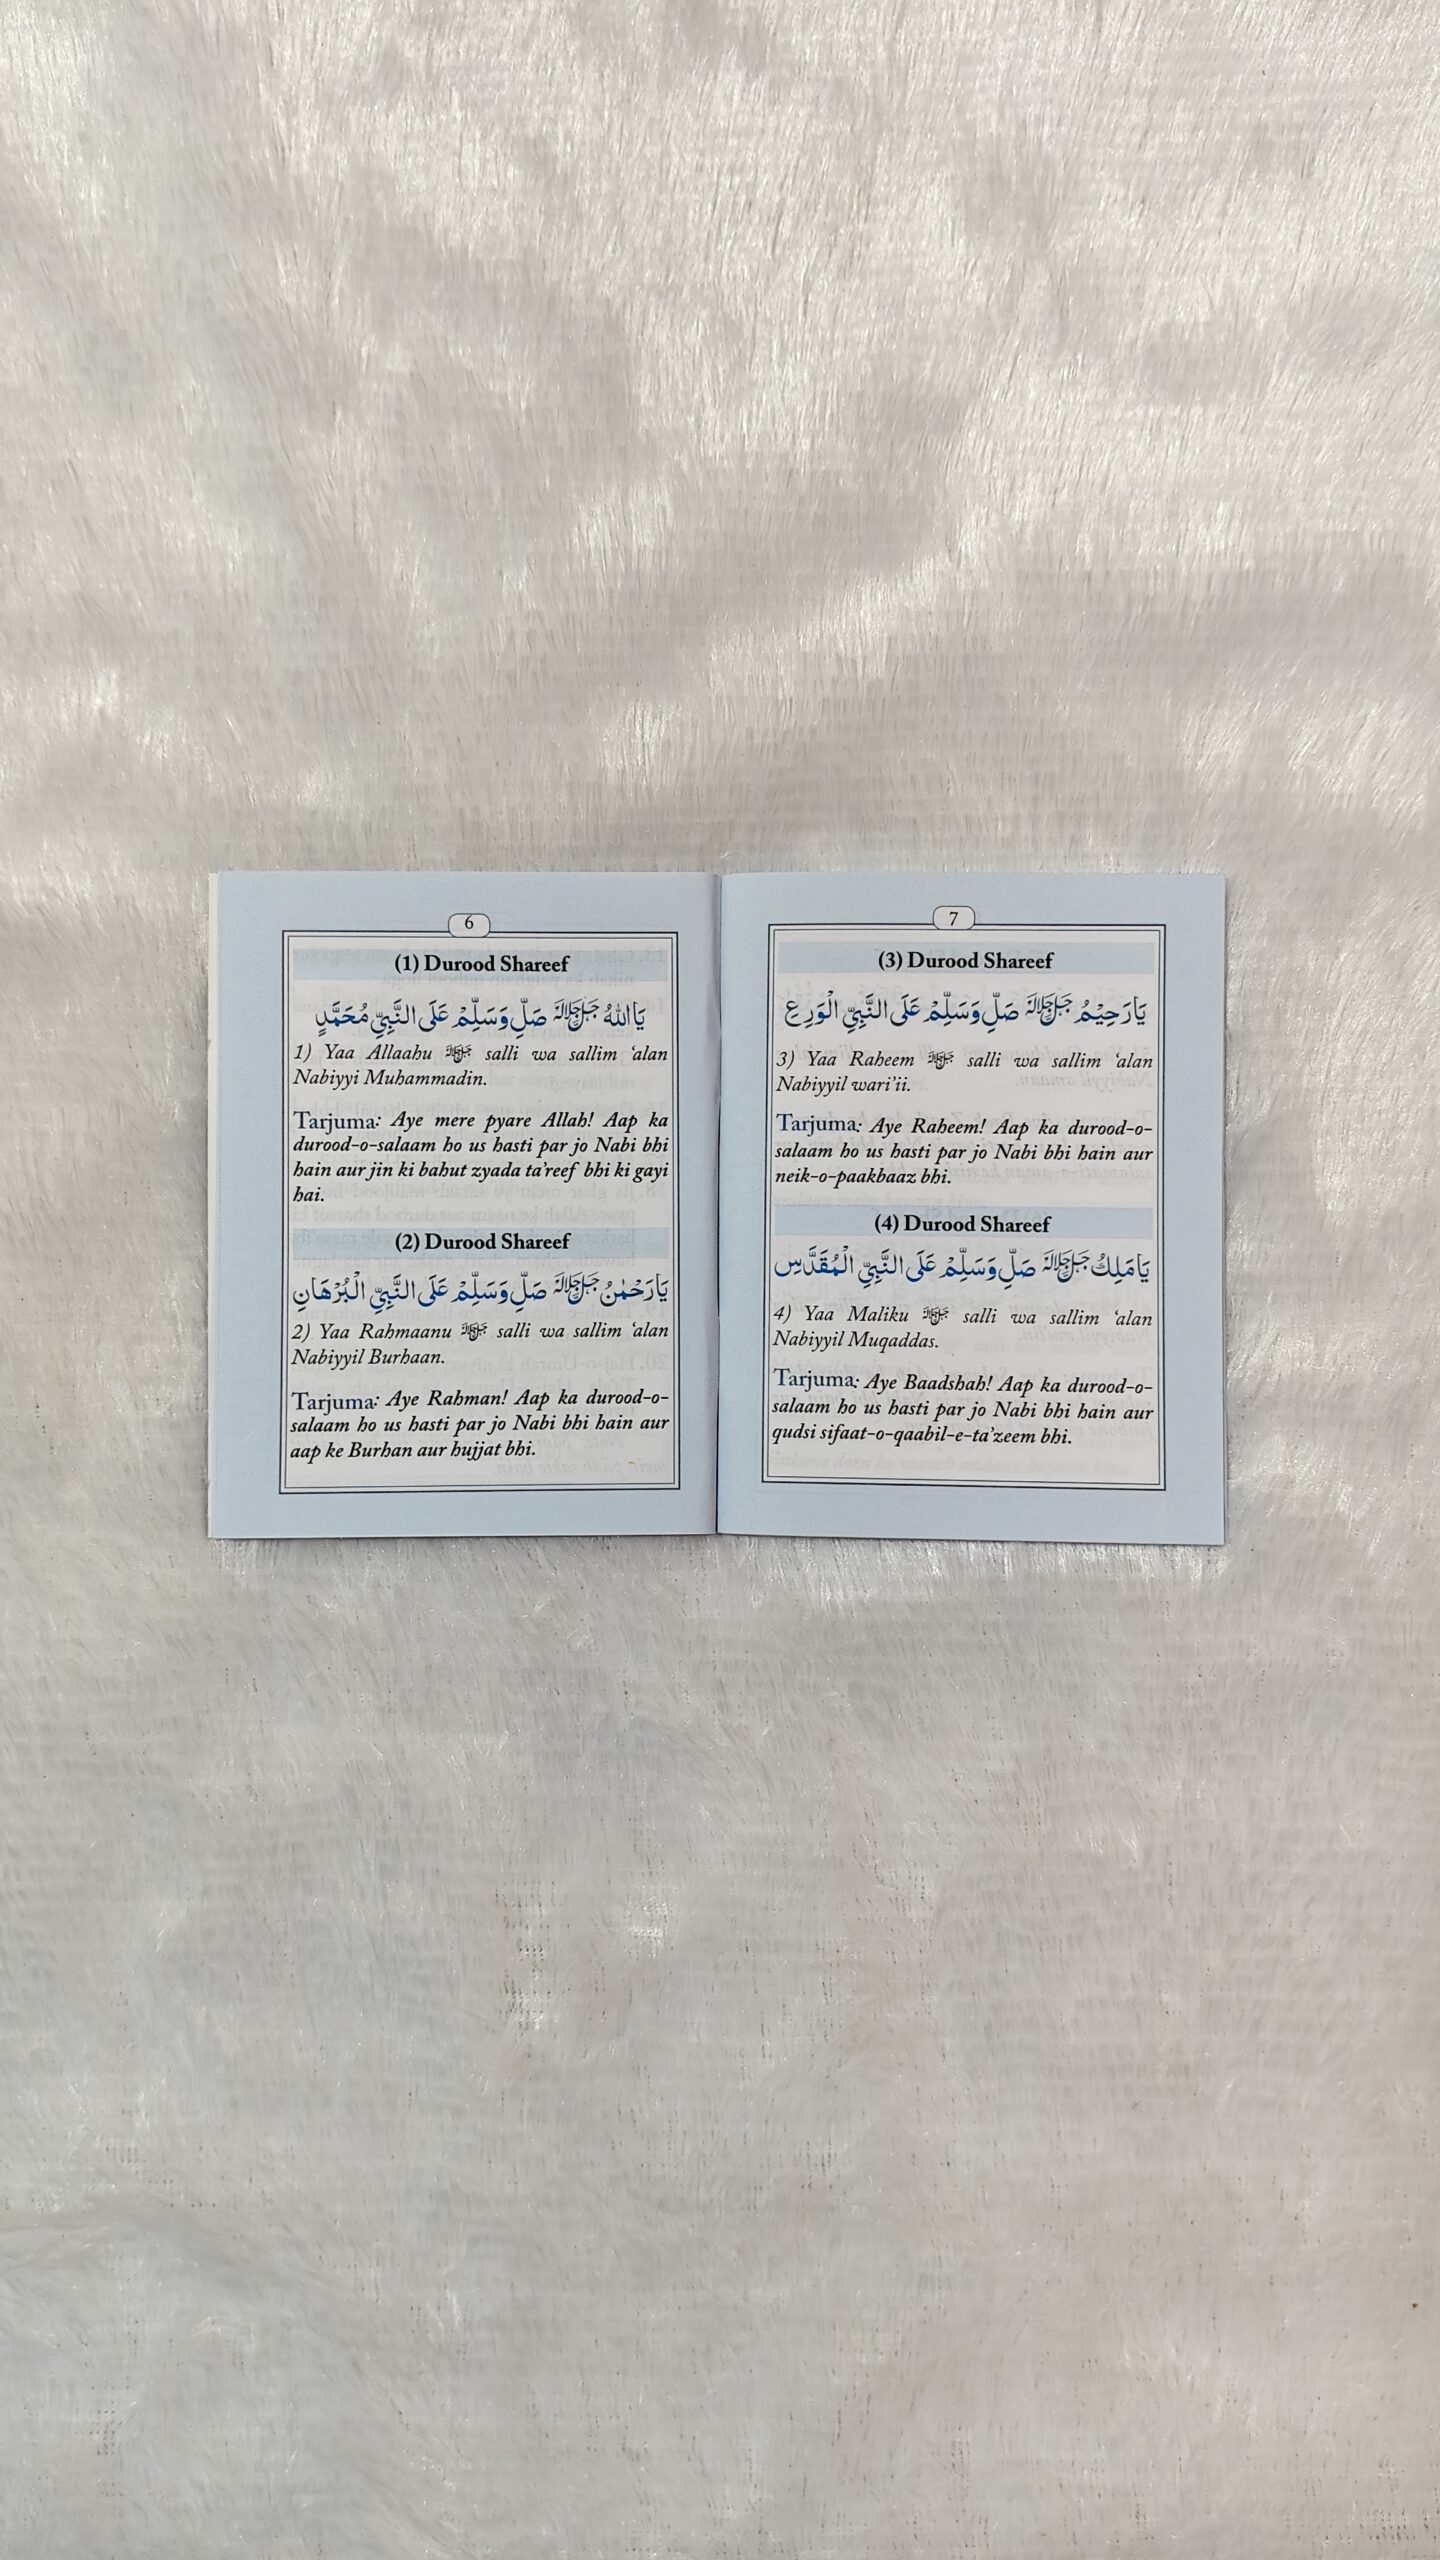 6
(1) Durood Shareef
يَااَللّٰهُ جَلَّ جَلَالَهٗ صَلِّ وَسَلِّمْ عَلَى النَّبِيِّ مُحَمَّدٍ
1) Yaa Allaahu ﷻ salli wa sallim ‘alan
Nabiyyi Muhammadin.
Tarjuma: Aye mere pyare Allah! Aap ka
durood-o-salaam ho us hasti par jo Nabi bhi
hain aur jin ki bahut zyada ta’reef bhi ki gayi
hai.
(2) Durood Shareef
يَارَحْمٰنُ جَلَّ جَلَالَهٗ صَلِّ وَسَلِّمْ عَلَى النَّبِيِّ الْبُرْهَانِ
2) Yaa Rahmaanu ﷻ salli wa sallim ‘alan
Nabiyyil Burhaan.
Tarjuma: Aye Rahman! Aap ka durood-o-
salaam ho us hasti par jo Nabi bhi hain aur
aap ke Burhan aur hujjat bhi.
7
(3) Durood Shareef
يَارَحِيْمُ جَلَّ جَلَالَهٗ صَلِّ وَسَلِّمْ عَلَى النَّبِيِّ الْوَرِعِ
3) Yaa Raheem ﷻ salli wa sallim ‘alan
Nabiyyil wari’ii.
Tarjuma: Aye Raheem! Aap ka durood-o-
salaam ho us hasti par jo Nabi bhi hain aur
neik-o-paakbaaz bhi.
(4) Durood Shareef
يَامَلِكُ جَلَّ جَلَالَهٗ صَلِّ وَسَلِّمْ عَلَى النَّبِيِّ الْمُقَدَّسِ
4) Yaa Maliku ﷻ salli wa sallim ‘alan
Nabiyyil Muqaddas.
Tarjuma: Aye Baadshah! Aap ka durood-o-
salaam ho us hasti par jo Nabi bhi hain aur
qudsi sifaat-o-qaabil-e-ta’zeem bhi.